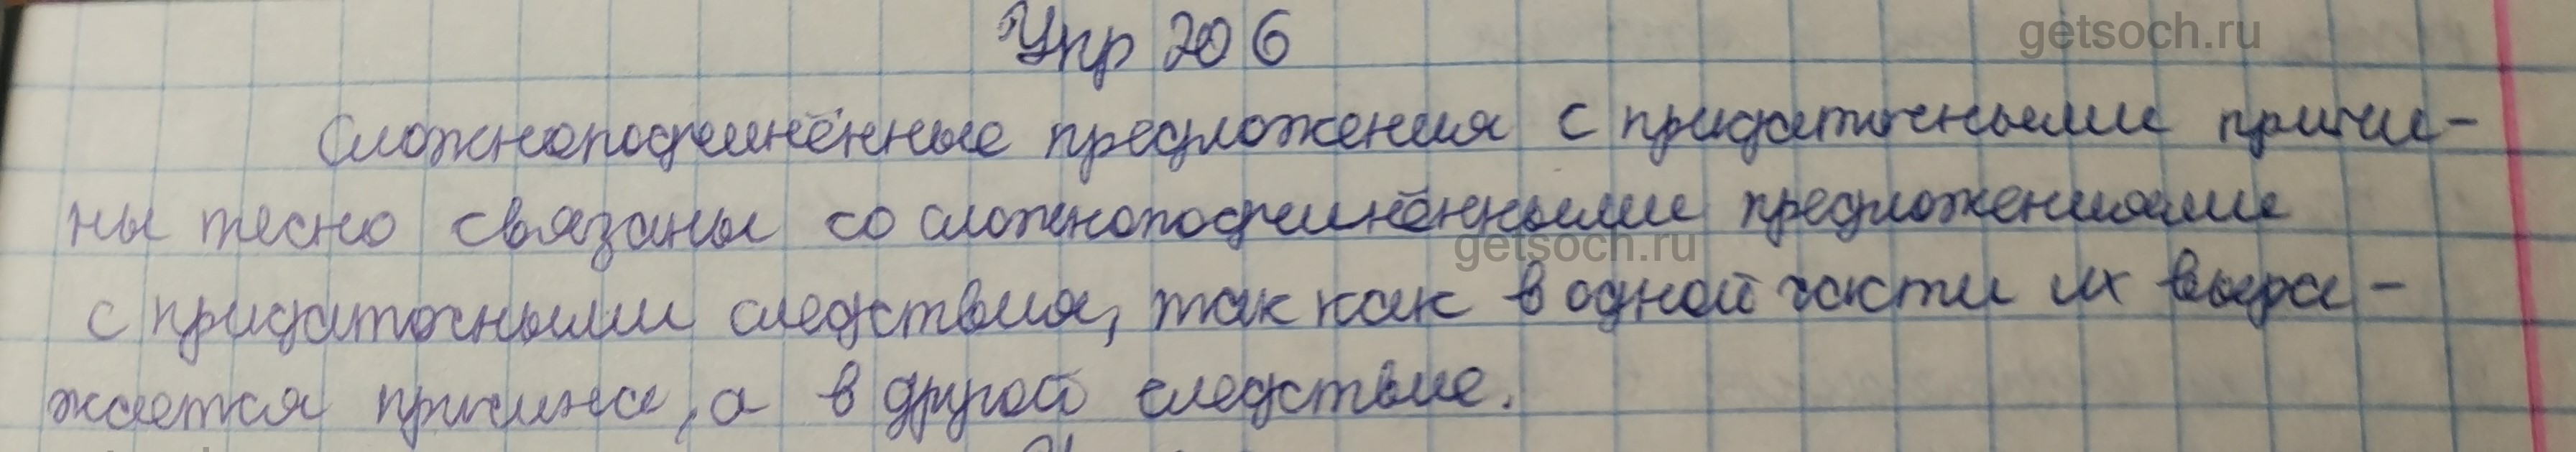 Упр 206
getsoch.ru
Сложноподчинённые предложения с придаточными причи-
ны тесно связаны со сложноподчинёнными предложениями
getsoch.ru
с придаточными следствия, так как в одной части их выра-
жается причина, а в другой следствие.